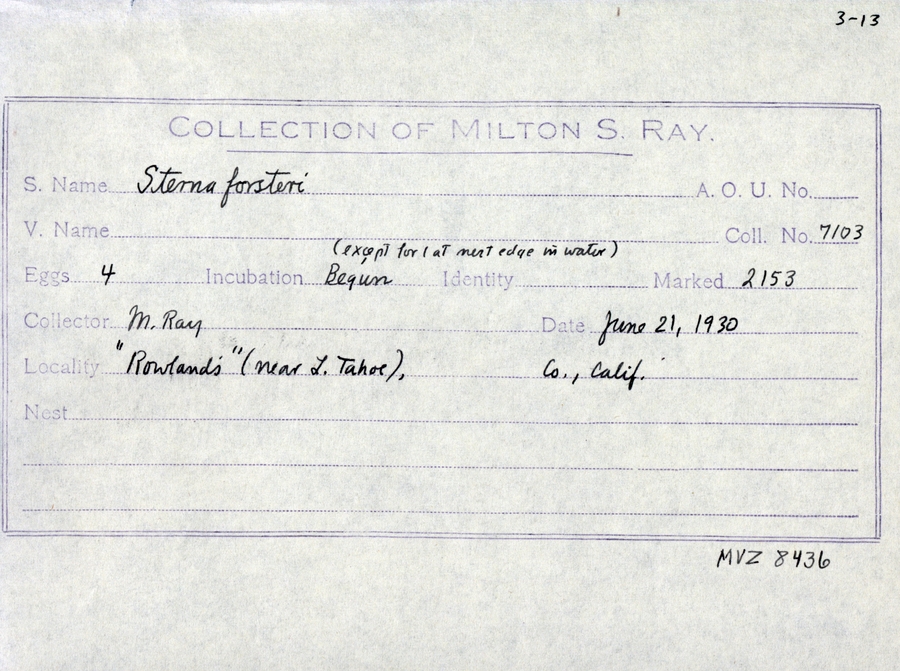 3-13
COLLECTION OF MILTON S. RAY.
S. Name Sterna forsteri A. O. U. No.
V. Name Coll. No. 7103
(except for 1 at nest edge in water)
Eggs 4 Incubation Begun Identity Marked 2153
Collector M. Ray Date June 21, 1930
Locality "Rowlands" (near L. Tahoe), Co., Calif.
Nest
MVZ 8436